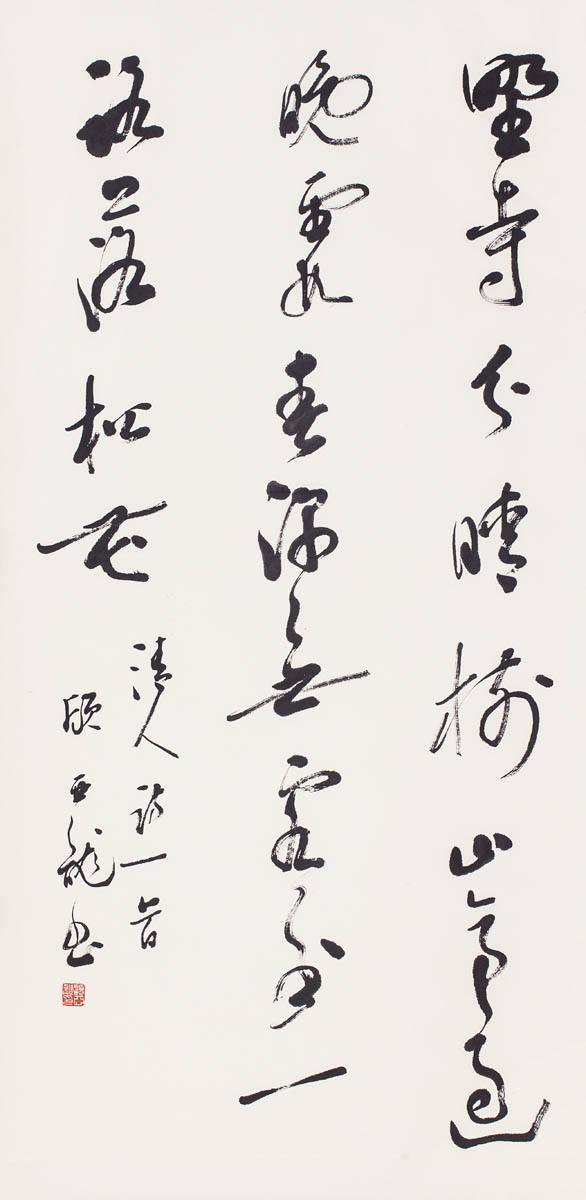 野寺分晴樹山亭過
晚霞春深無客到一
路落松花
清人詩一首
顧亞龍書